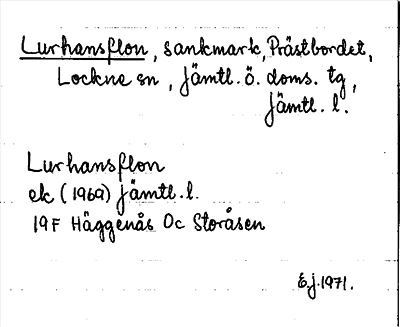 Lurhansflon, sankmark, Prästbordet,
Lockne sn, Jämtl. ö. doms. tg,
Jämtl. l.
Lurhansflon
ek (1969) Jämtl. l.
19F Häggenås Oc Storåsen
E.J. 1971.